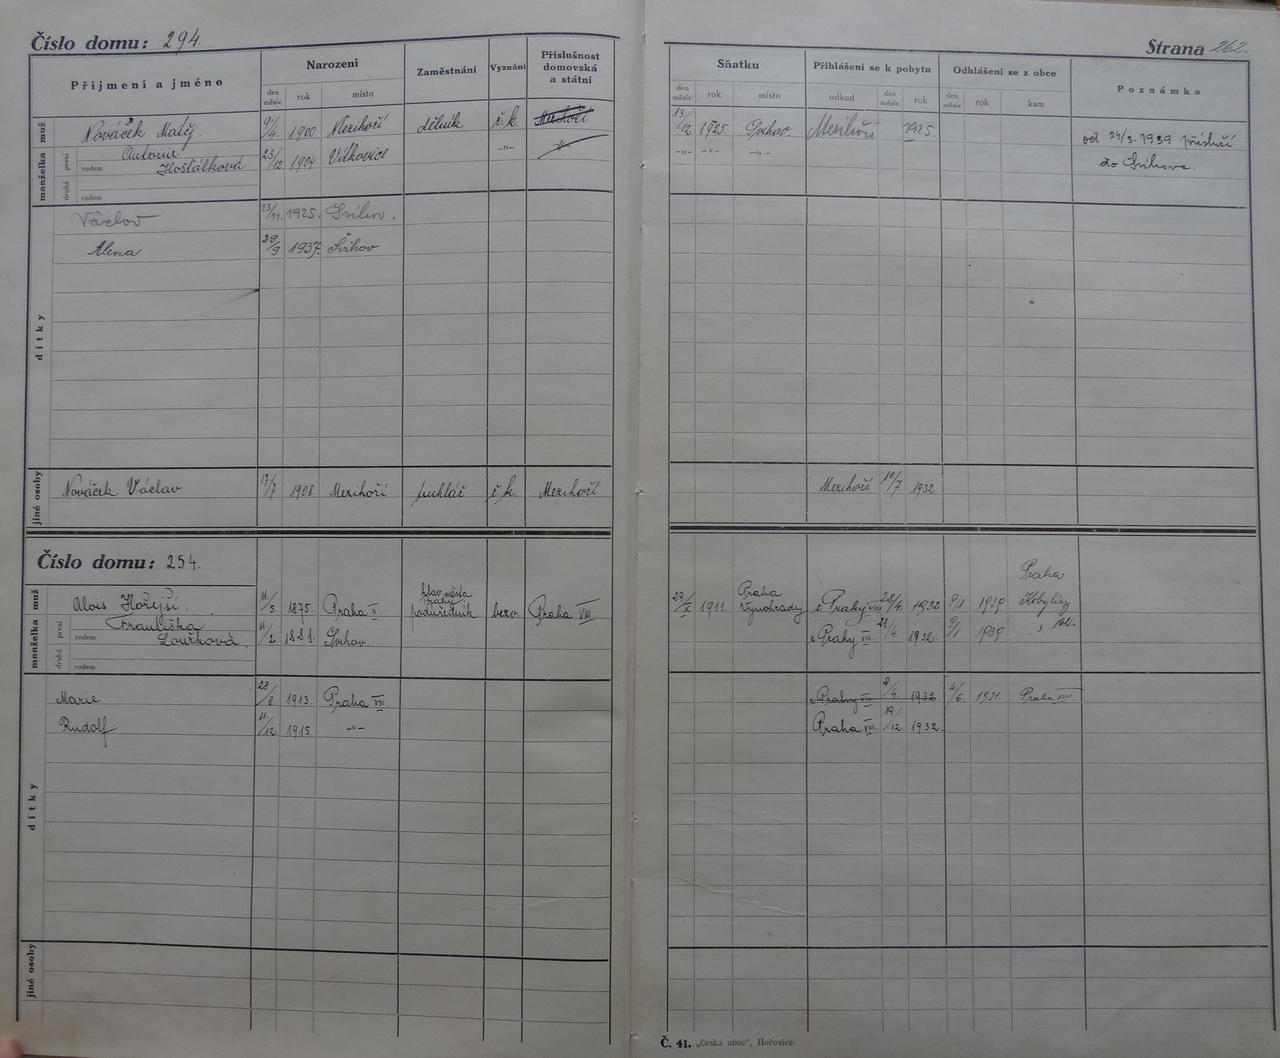 Číslo domu: 294.
Strana 262.
Příjmení a jméno
Narození
den měsíc rok místo
Zaměstnání
Vyznání
Příslušnost domovská a státní
Sňatku
den měsíc rok místo
Přihlášení se k pobytu
odkud den měsíc rok
Odhlášení se z obce
den měsíc rok kam
Poznámka
muž Nováček Matěj. 9/4 1900 Mezihoří dělník ř. k. Mezihoří 13/12 1925 Švihov Mezihoří 1925. od 24/3. 1939 přísluší
manželka první rodem Hošťálková 23/12 1904 Vítkovice -"- -"- -"- -"- do Švihova.
druhá rodem
dítky
Václav 23/11. 1925. Švihov.
Alena 29/9 1937. Švihov
jiné osoby Nováček Václav 17/7 1908. Mezihoří truhlář ř. k. Mezihoří Mezihoří 10/7 1932
Číslo domu: 254.
muž Alois Hořejší. 11/5. 1875. Praha II. hlav. města Prahy podúředník bezv. Praha VIII. 29/X 1911. Praha Vinohrady z Prahy VIII 28/4. 1932 9/1 1939 Praha Kobylisy
manželka první Františka rodem Loušková. 11/2. 1881. Švihov. z Prahy VIII. 28/4 1932. 9/1 1939
druhá rodem
dítky
Marie 28/8. 1913. Praha VIII. z Prahy VIII. 8/4. 1932 2/6. 1931. Praha VIII.
Rudolf 11/12. 1915. -"- Praha VIII. 19/12. 1932.
jiné osoby
Č. 41. „Česká obec", Hořovice.